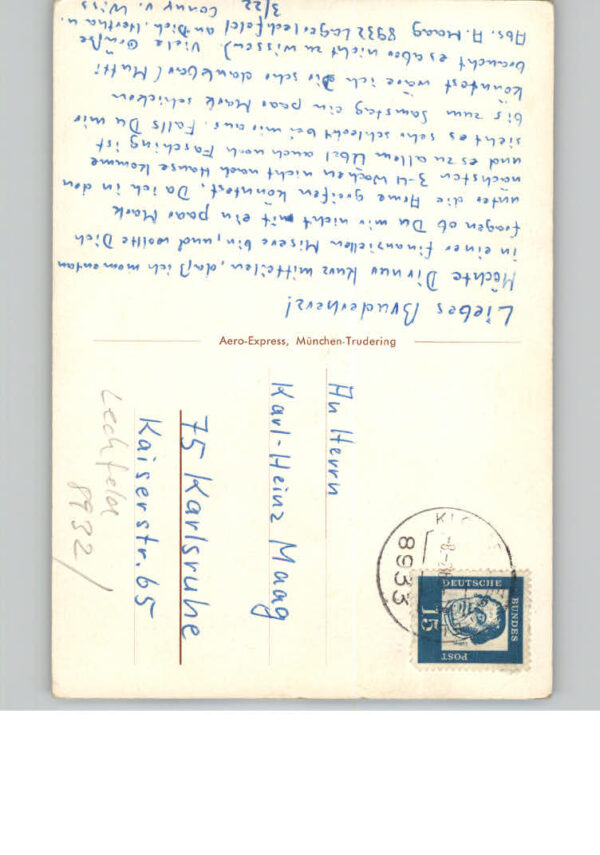 Liebes Bruderherz!
Möchte Dir nur kurz mitteilen, daß ich momentan
in einer finanziellen Misere bin, und wollte Dich
fragen ob Du mir nicht mit ein paar Mark
unter die Arme greifen könntest. Da ich in den
nächsten 3-4 Wochen nicht nach Hause komme
und es zu allem Übel auch noch Fasching ist
sieht es sehr schlecht bei mir aus. Falls Du mir
bis zum Samstag ein paar Mark schicken
könntest wäre ich Dir sehr dankbar (Mutti
braucht es aber nicht zu wissen). Viele Grüße
Abs. A. Maag 8932 Lagerlechfeld an Dich, Hertha u.
3/22 Conny v.
Aero-Express, München-Trudering
An Herrn
Karl-Heinz Maag
75 Karlsruhe
Kaiserstr. 65
Lechfeld
8932/
8933
DEUTSCHE
BUNDES
POST
15